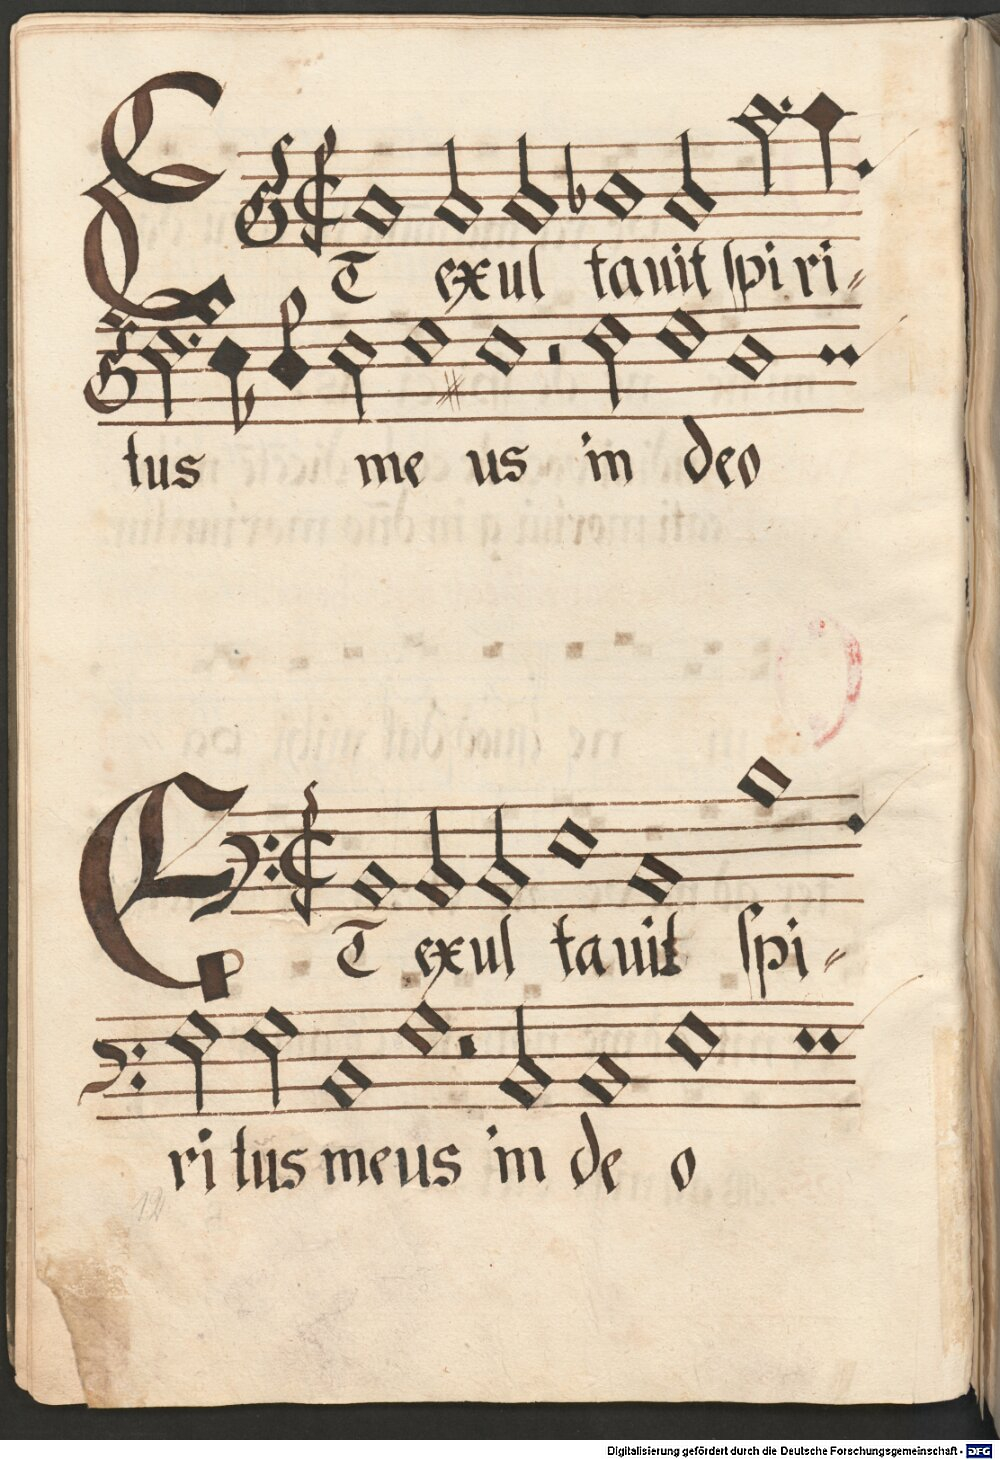 ET exul tauit spi ri=
tus me us in deo
ET exul tauit spi=
ri tus meus in de o
12
Digitalisierung gefördert durch die Deutsche Forschungsgemeinschaft - DFG